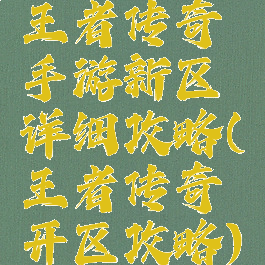 王者传奇
手游新区
详细攻略(
王者传奇
开区攻略)